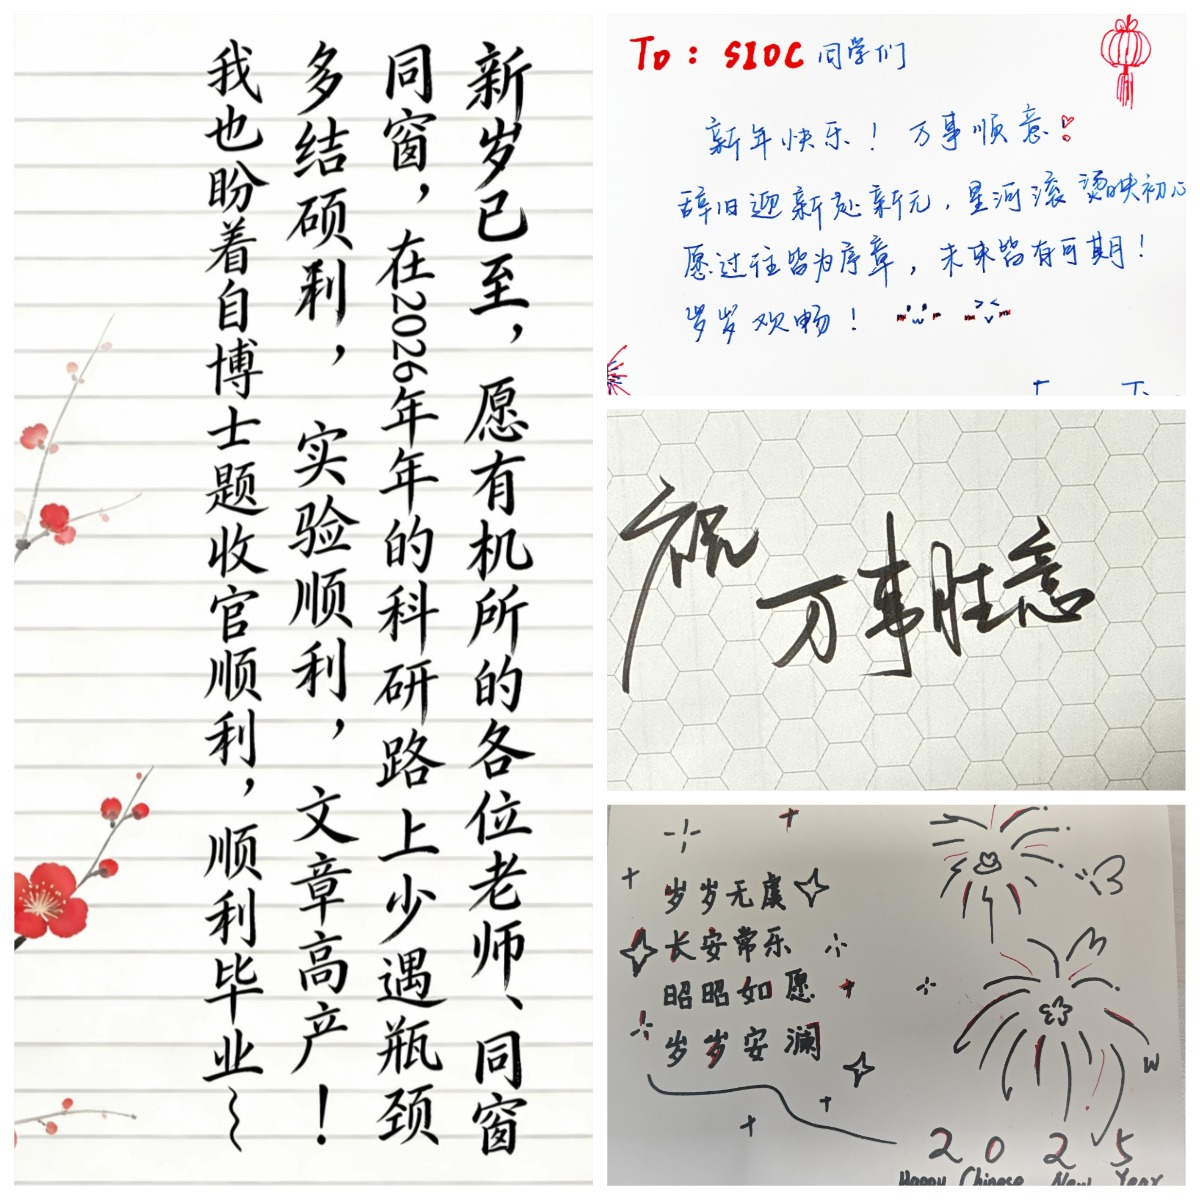 新岁已至，愿有机所的各位老师、同窗
同窗，在2026年年的科研路上少遇瓶颈
多结硕，实验顺利，文章高产！
我也盼着自博士题收官顺利，顺利毕业～
To：SIOC 同学们
新年快乐！万事顺意！
辞旧迎新赴新元，星河滚烫映初心
愿过往皆为序章，未来皆有可期！
岁岁欢畅！
祝
万事胜意
岁岁无虞
长安常乐
昭昭如愿
岁岁安澜
2025
Happy Chinese New Year